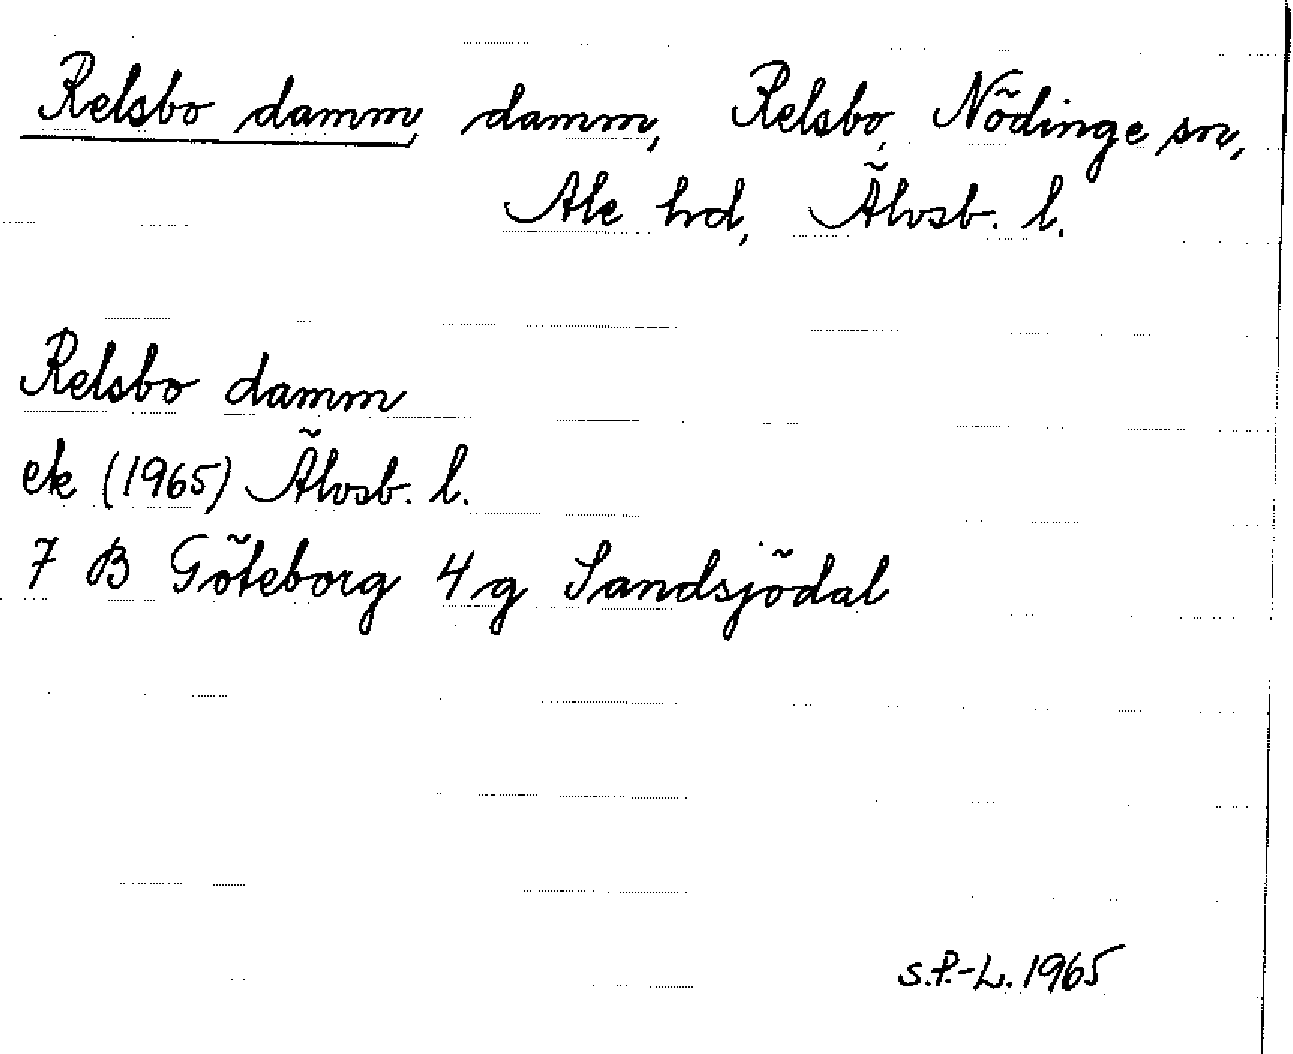 Relsbo damm, damm, Relsbo, Nödinge sn,
Ale hd, Älvsb. l.
Relsbo damm
ek (1965) Älvsb. l.
7 B Göteborg 4 g Sandsjödal
S.P.-L. 1965